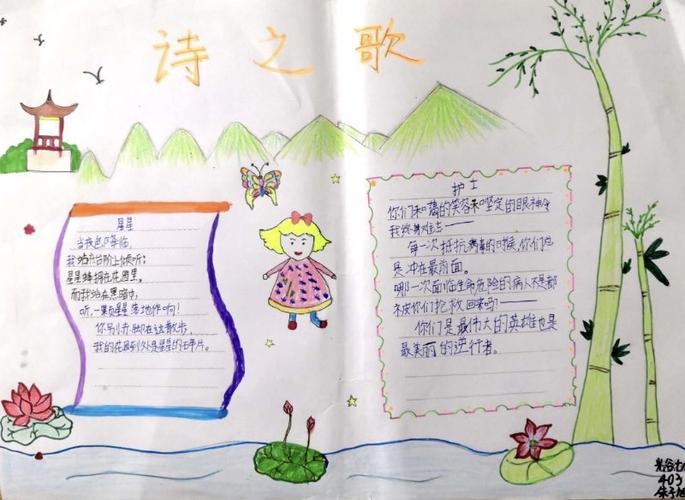 诗之歌
星星
当夜色降临,
我站在台阶上倾听;
星星蜂拥在花园里
而我站在黑暗中
听,一颗星星落地作响!
你别赤脚在这散步,
我的花园到处是星星的碎片。
护士
你们和蔼的笑容和坚定的眼神令
我终身难忘——
每一次抵抗病毒的时候,你们也
是冲在最前面。
哪一次面临生命危险的病人不是都
不被你们抢救回来吗?
你们是最伟大的英雄也是
最美丽的逆行者。
光谷
403